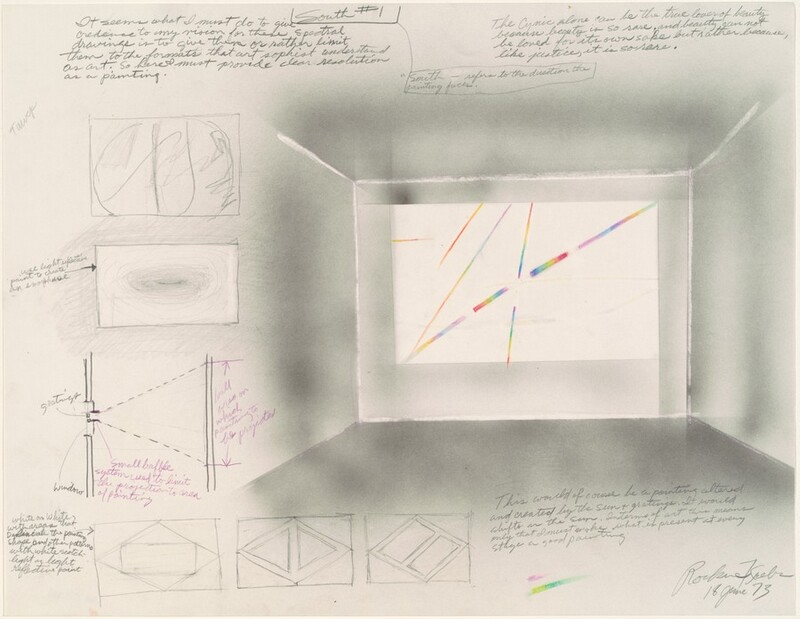 It seems what I must do to give
credense to my vision for these spectral
drawings is to give them or rather limit
them to the formats that art sophist understand
as art. So here I must provide clear resolution
as a painting.
South #1
"South – refers to the direction the
painting faces.
The Cynic alone can be the true lover of beauty
because beauty is so rare, and beauty can not
be loved for its own sake but rather because,
like justice, it is so rare.
use light reflective
paint to create
an
gratings
window
small baffle
system used to limit
the projection to area
of painting
wall
area on
which
painting to
be projected
white on white
with areas that
the painting
shape and other patterns
with white scotch
light or light
reflective paint
This would of course be a painting altered
and created by the sun & gratings. It would
shift as the sun. In terms of art this means
only that I must make what is present at every
stage a good painting
Rockne Krebs
18 June 73